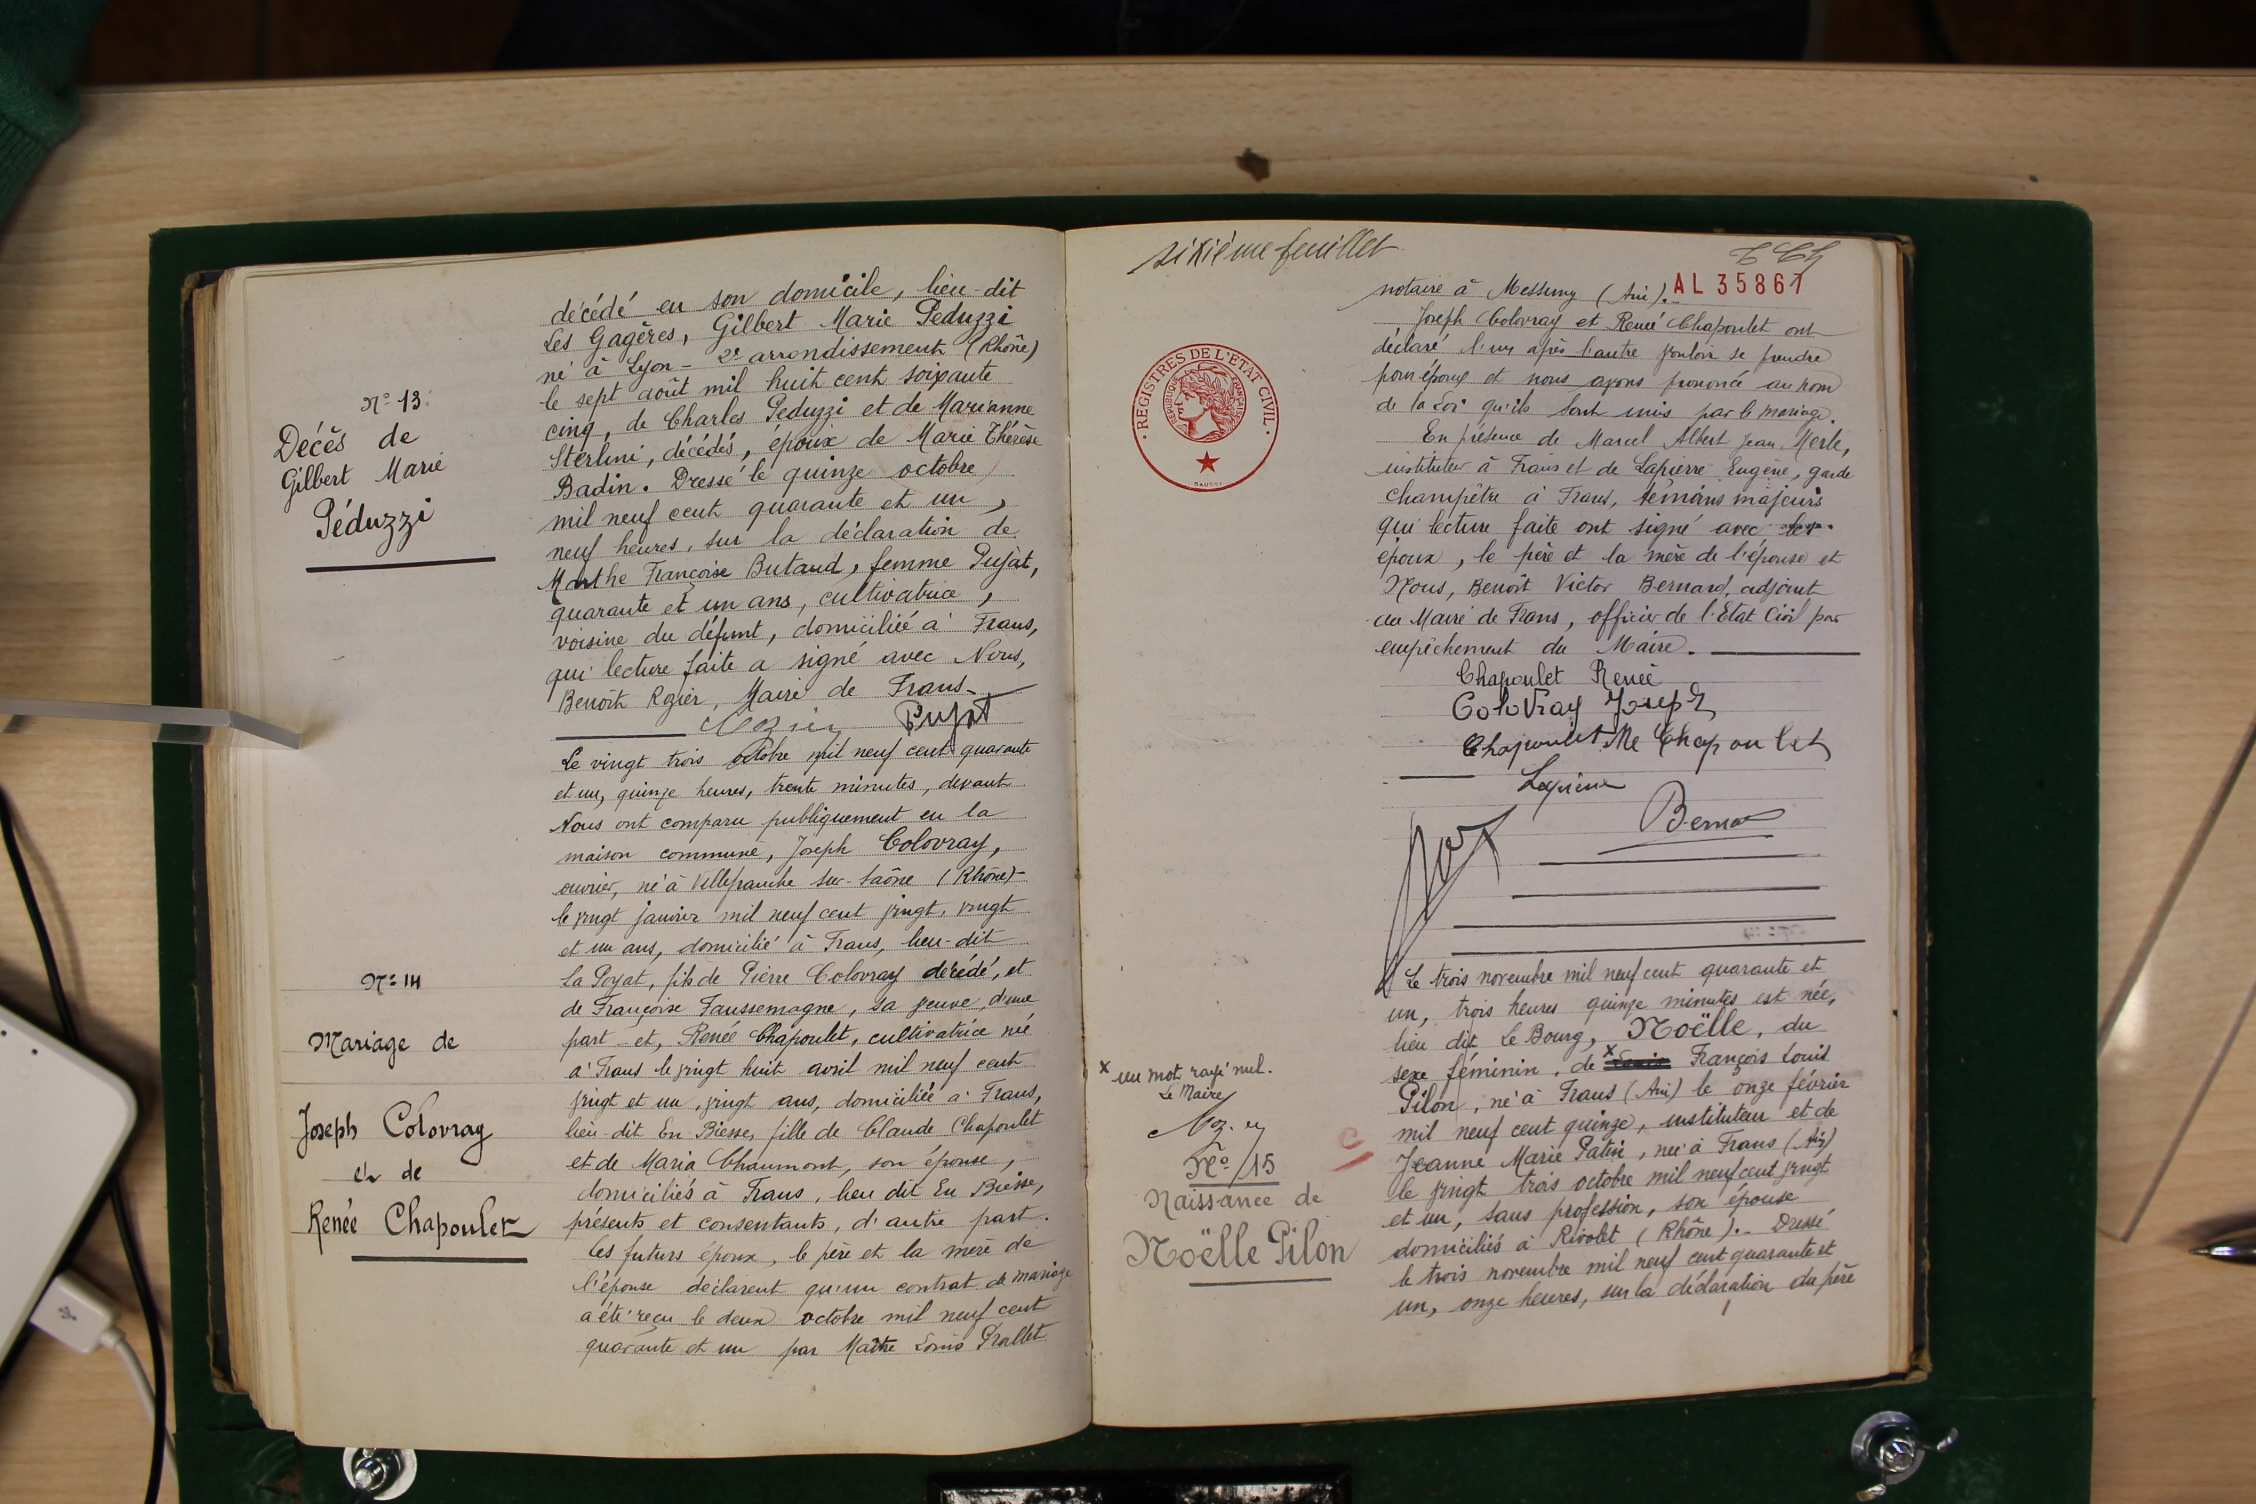 décédé en son domicile, lieu-dit
Les Gagères, Gilbert Marie Péduzzi
né à Lyon - 2e arrondissement (Rhône)
le sept août mil huit cent soixante
cinq, de Charles Péduzzi et de Marianne
Sterlini, décédés, époux de Marie Thérèse
Badin. Dressé le quinze octobre
mil neuf cent quarante et un,
neuf heures, sur la déclaration de
Marthe Françoise Butaud, femme Pujat,
quarante et un ans, cultivatrice,
voisine du défunt, domiciliée à Frans,
qui lecture faite a signé avec Nous,
Benoît Rozier, Maire de Frans.
Rozier Pujat
N° 13.
Décès de
Gilbert Marie
Péduzzi
Le vingt trois octobre mil neuf cent quarante
et un, quinze heures, trente minutes, devant
Nous ont comparu publiquement en la
maison commune, Joseph Colovray,
ouvrier, né à Villefranche sur-Saône (Rhône)
le vingt janvier mil neuf cent vingt, vingt
et un ans, domicilié à Frans, lieu-dit
La Poyat, fils de Pierre Colovray décédé, et
de Françoise Faussemagne, sa veuve, d'une
part et, Renée Chapoulet, cultivatrice née
à Frans le vingt huit avril mil neuf cent
vingt et un, vingt ans, domiciliée à Frans,
lieu-dit En Biesse, fille de Claude Chapoulet
et de Maria Chaumont, son épouse,
domiciliés à Frans, lieu dit En Biesse,
présents et consentants, d'autre part.
Les futurs époux, le père et la mère de
l'épouse déclarent qu'un contrat de mariage
a été reçu le deux octobre mil neuf cent
quarante et un par Maître Louis Prallet
N° 14
Mariage de
Joseph Colovray
et de
Renée Chapoulet
sixième feuillet
AL 35861
REGISTRES DE L'ETAT CIVIL
REPUBLIQUE FRANÇAISE
notaire à Messimy (Ain).
Joseph Colovray et Renée Chapoulet ont
déclaré l'un après l'autre vouloir se prendre
pour époux et nous avons prononcé au nom
de la Loi qu'ils sont unis par le mariage.
En présence de Marcel Albert Jean Merle,
instituteur à Frans et de Lapierre Eugène, garde
champêtre à Frans, témoins majeurs
qui lecture faite ont signé avec les
époux, le père et la mère de l'épouse et
Nous, Benoît Victor Bernard, adjoint
au Maire de Frans, officier de l'Etat Civil par
empêchement du Maire.
Chapoulet Renée
Colovray Joseph
Chapoulet Me Chapoulet
Lapierre
Le trois novembre mil neuf cent quarante et
un, trois heures quinze minutes est née,
lieu dit Le Bourg, Noëlle, du
sexe féminin, de x François Louis
Pilon, né à Frans (Ain) le onze février
mil neuf cent quinze, instituteur et de
Jeanne Marie Patin, née à Frans (Ain)
le vingt trois octobre mil neuf cent vingt
et un, sans profession, son épouse
domiciliés à Rivolet (Rhône). Dressé
le trois novembre mil neuf cent quarante et
un, onze heures, sur la déclaration du père
x un mot rayé nul.
Le Maire
N° 15
Naissance de
Noëlle Pilon